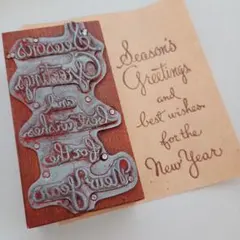 Season's
Greetings
and
best wishes
for the
New Year